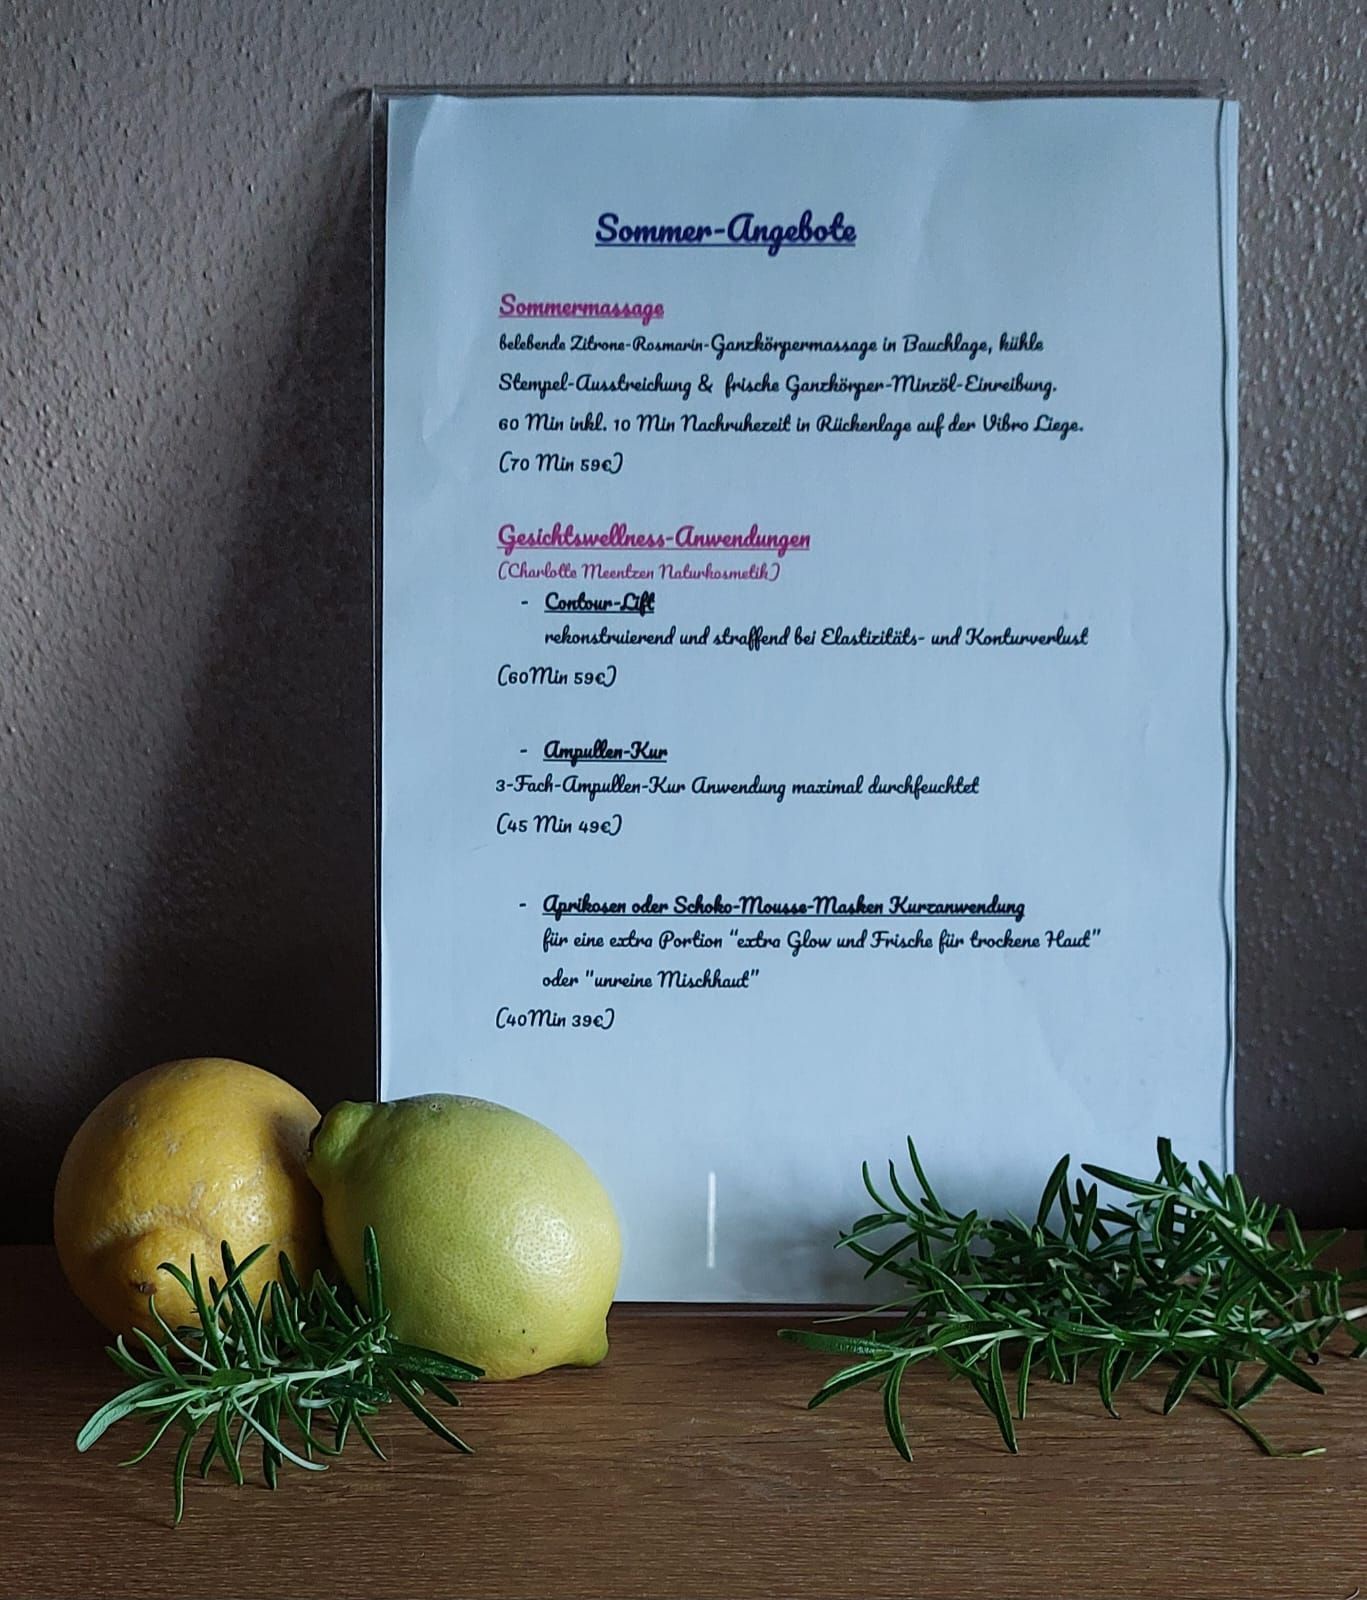 Sommer-Angebote
Sommermassage
belebende Zitrone-Rosmarin-Ganzkörpermassage in Bauchlage, kühle
Stempel-Ausstreichung & frische Ganzkörper-Minzöl-Einreibung.
60 Min inkl. 10 Min Nachruhezeit in Rückenlage auf der Vibro Liege.
(70 Min 59€)
Gesichtswellness-Anwendungen
(Charlotte Meentzen Naturkosmetik)
- Contour-Lift
rekonstruierend und straffend bei Elastizitäts- und Konturverlust
(60Min 59€)
- Ampullen-Kur
3-Fach-Ampullen-Kur Anwendung maximal durchfeuchtet
(45 Min 49€)
- Aprikosen oder Schoko-Mousse-Masken Kurzanwendung
für eine extra Portion "extra Glow und Frische für trockene Haut"
oder "unreine Mischhaut"
(40Min 39€)